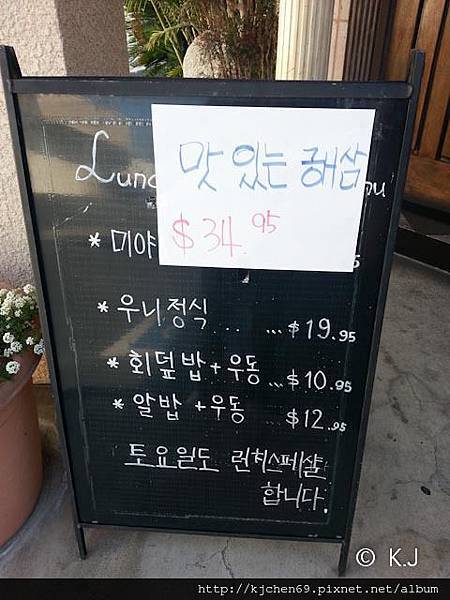 맛 있는 해삼
$34.95
* 미야
* 우니정식... ...$19.95
* 회덮밥+우동...$10.95
* 알밥+우동 ...$12.95
토요일도 런치스페샬
합니다.
© K.J
http://kjchen69.pixnet.net/album